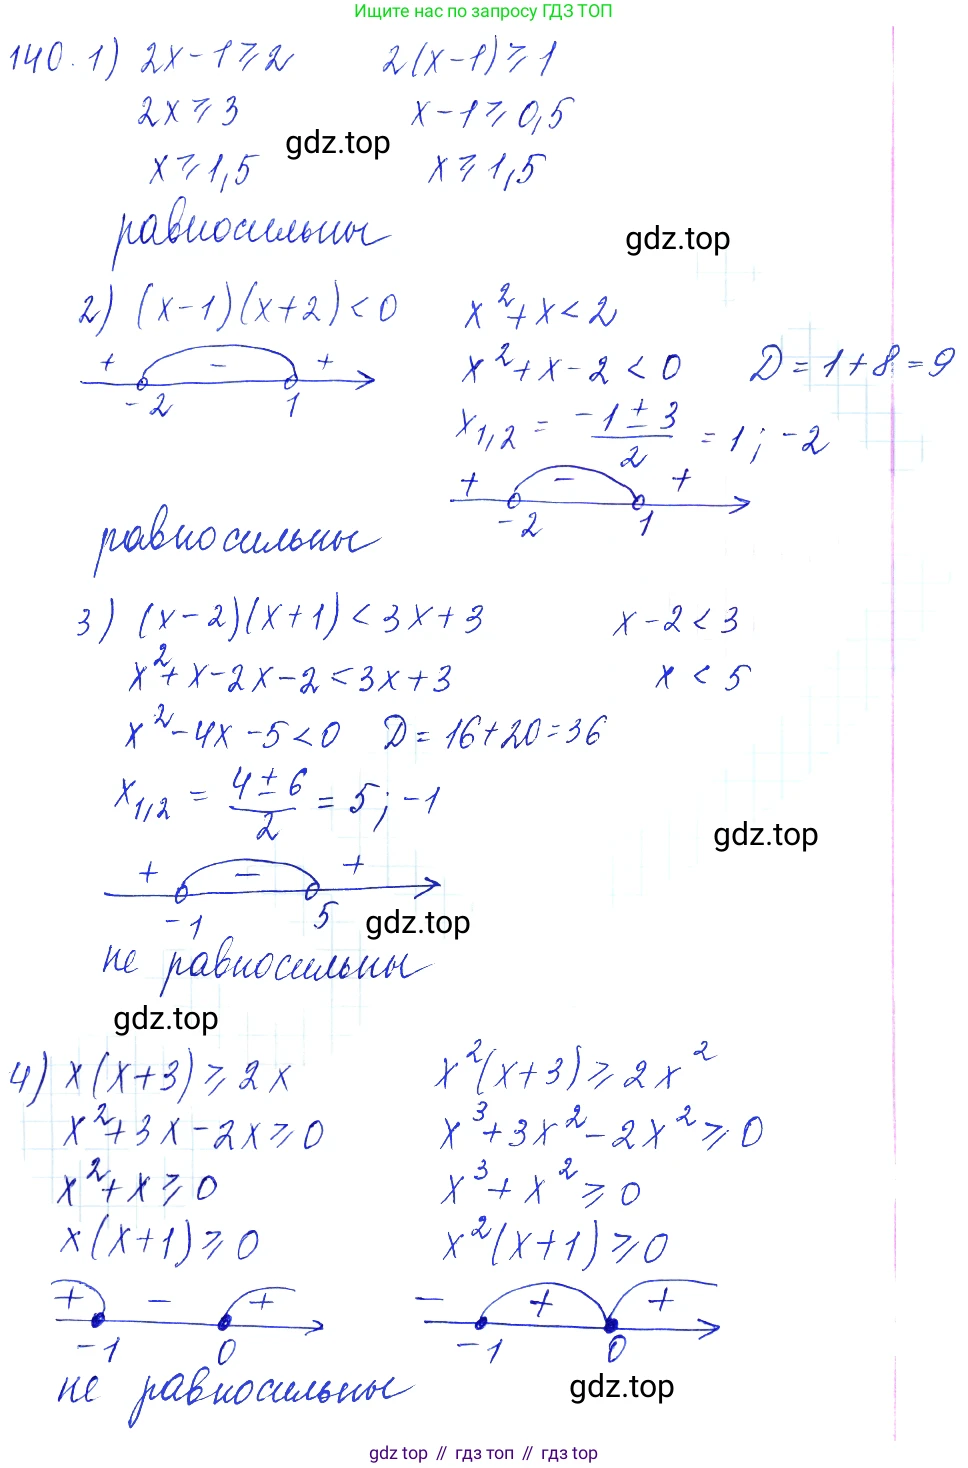 Ищите нас по запросу ГДЗ ТОП
140. 1) 2x-1⩾2   2(x-1)⩾1
2x⩾3   x-1⩾0,5
gdz.top
x⩾1,5   x⩾1,5
равносильны
gdz.top
2) (x-1)(x+2)<0   x²+x<2
+ - +   x²+x-2<0   D=1+8=9
-2 1   x₁,₂ = (-1±3)/2 = 1; -2
+ - +
-2 1
равносильны
3) (x-2)(x+1)<3x+3   x-2<3
x²+x-2x-2<3x+3   x<5
x²-4x-5<0   D=16+20=36
x₁,₂ = (4±6)/2 = 5; -1
gdz.top
+ - +
-1 5
gdz.top
не равносильны
gdz.top
4) x(x+3)⩾2x   x²(x+3)⩾2x²
x²+3x-2x⩾0   x³+3x²-2x²⩾0
x²+x⩾0   x³+x²⩾0
x(x+1)⩾0   x²(x+1)⩾0
+ - +   - + +
-1 0   -1 0
не равносильны
gdz.top
gdz top // гдз топ // gdz top